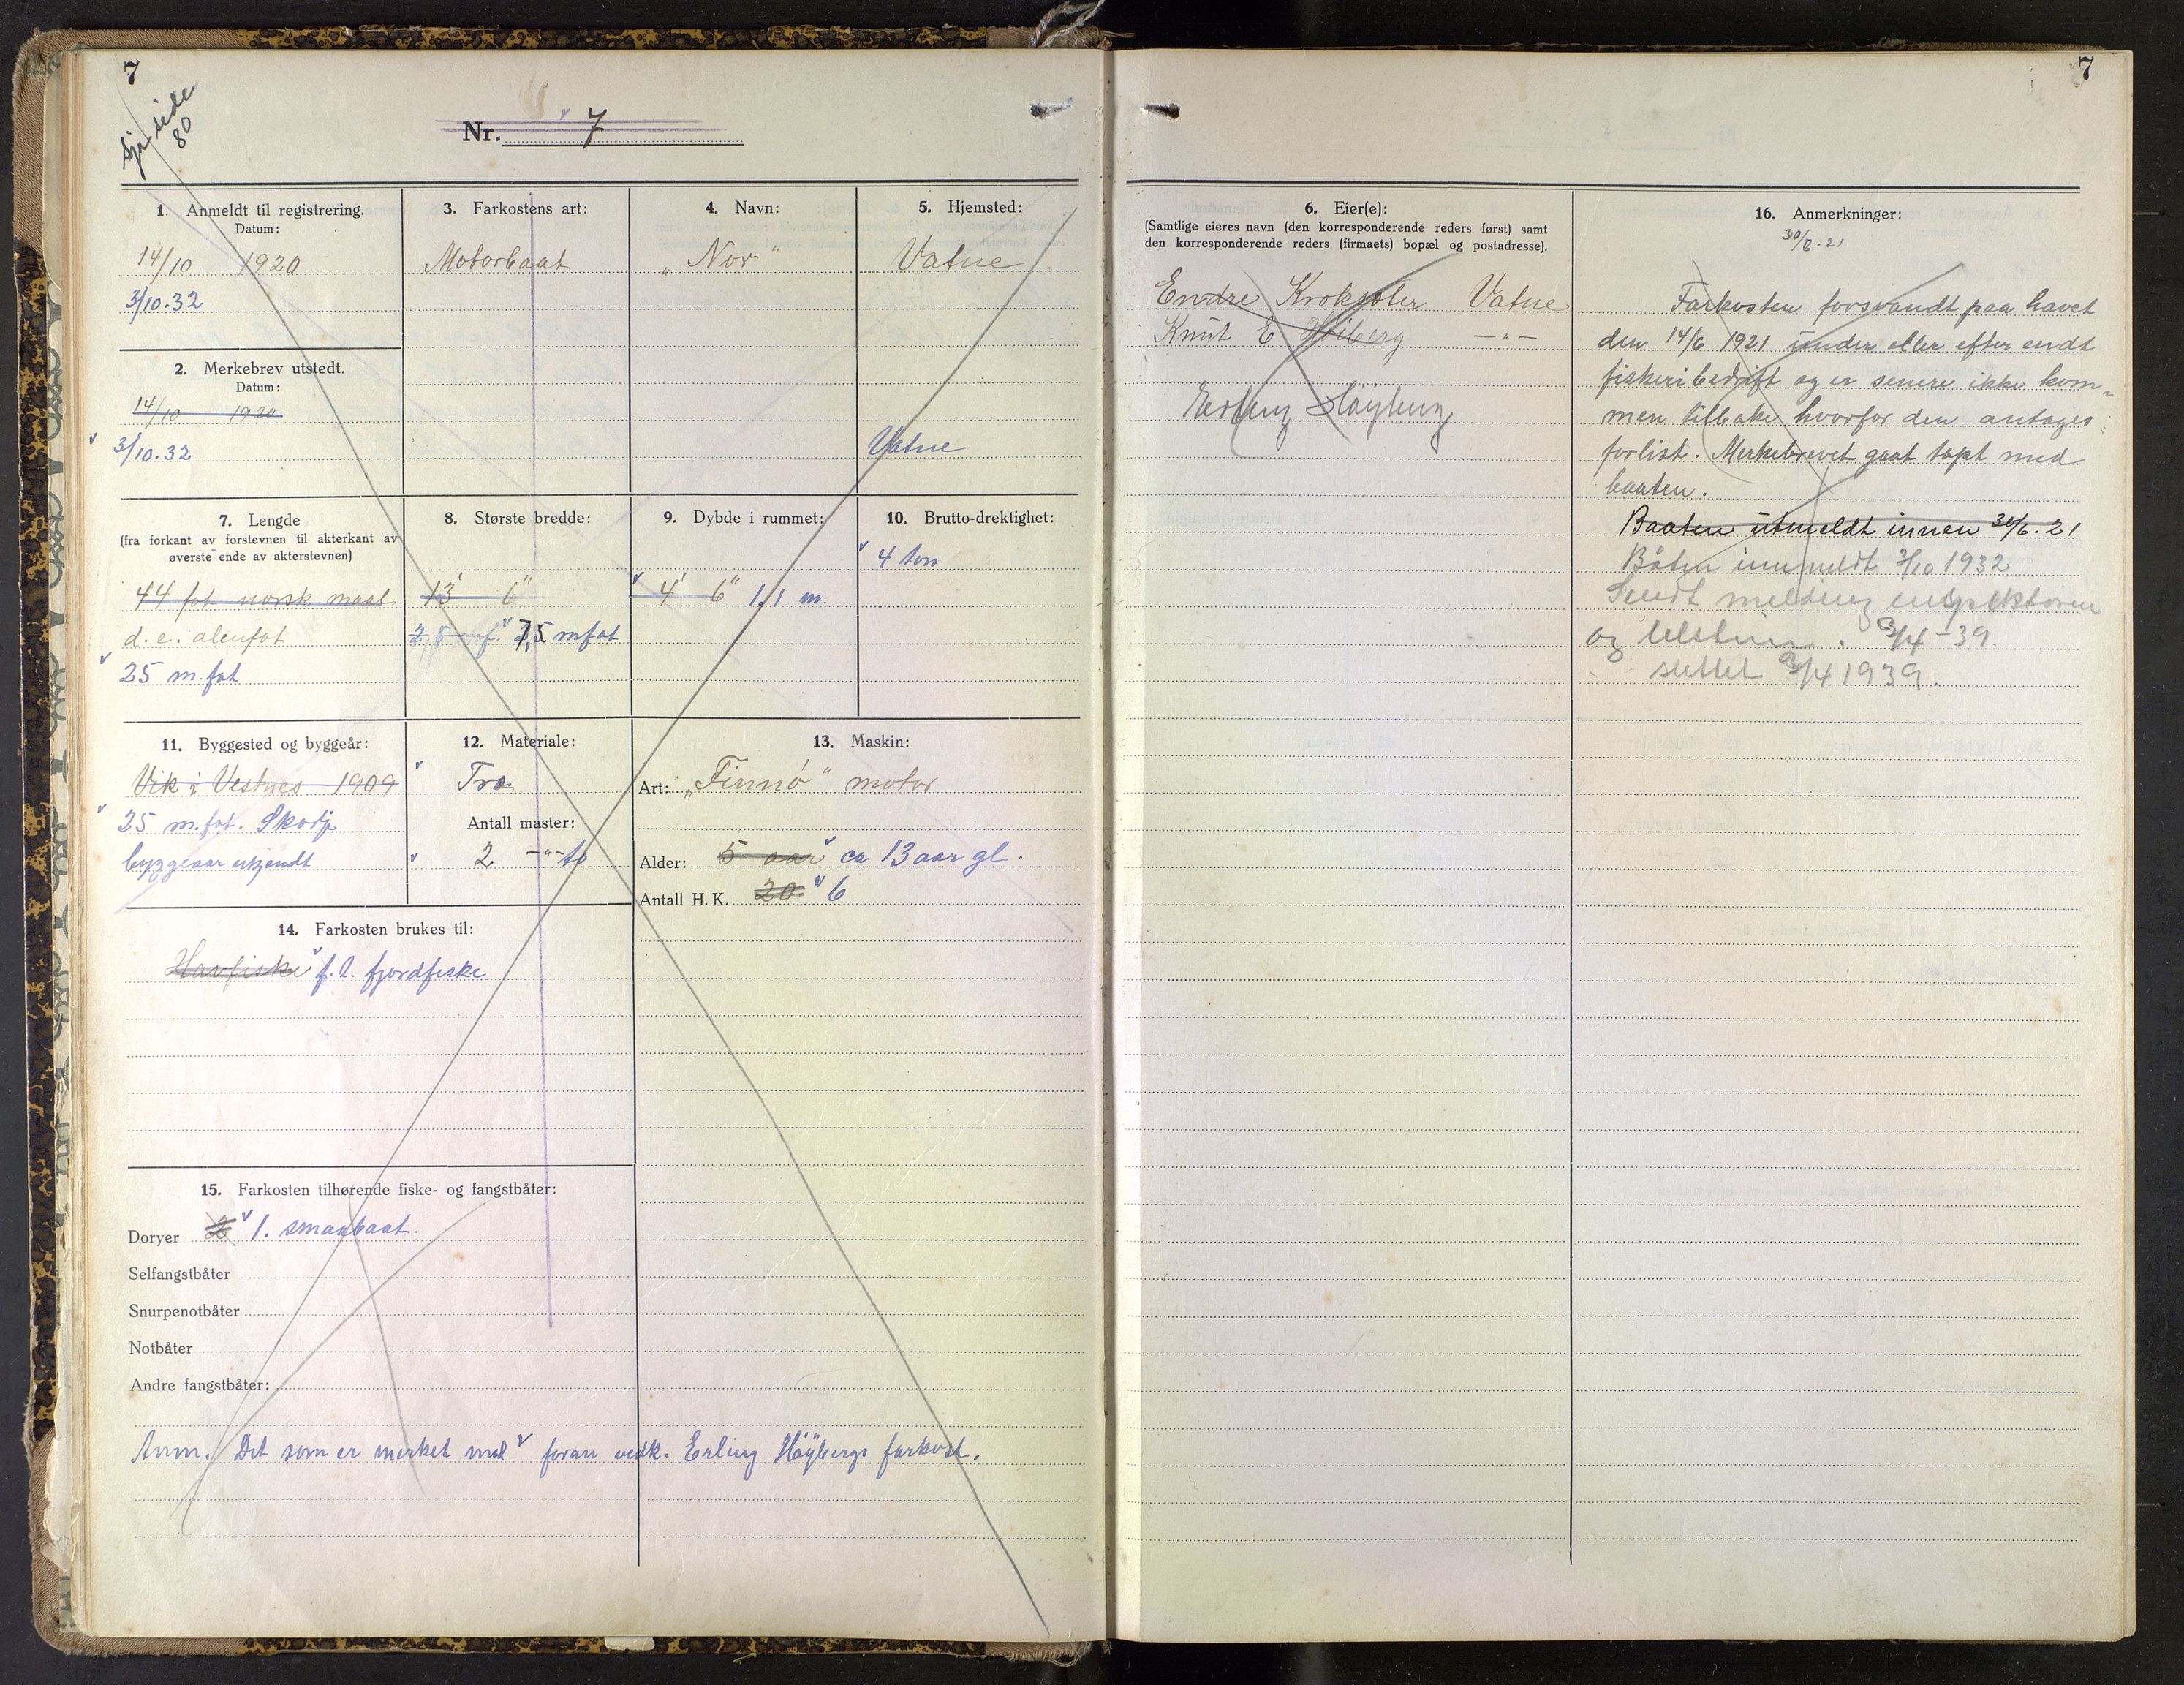 7
Sji side
80
Nr. 7
1. Anmeldt til registrering.
Datum:
14/10 1920
3/10.32
2. Merkebrev utstedt.
Datum:
14/10 1920
3/10.32
3. Farkostens art:
Motorbaat
4. Navn:
„Nor"
5. Hjemsted:
Vatne
Vatne
7. Lengde
(fra forkant av forstevnen til akterkant av
øverste ende av akterstevnen)
44 fot norsk maal
d. e. alenfot
25 m.fot
8. Største bredde:
13' 6"
7,5 mfot
9. Dybde i rummet:
4' 6" 1,1 m.
10. Brutto-drektighet:
4 ton
11. Byggested og byggeår:
Vik i Vestnes 1909
25 m.fot. Skodje
byggeaar ukjendt
12. Materiale:
Træ
Antall master:
2 -"- to
13. Maskin:
Art: „Finnö" motor
Alder: 5 aar ca 13 aar gl.
Antall H. K. 20 6
14. Farkosten brukes til:
Havfiske f. t. fjordfiske
15. Farkosten tilhørende fiske- og fangstbåter:
Doryer 2 1. smaabaat.
Selfangstbåter
Snurpenotbåter
Notbåter
Andre fangstbåter:
Anm. Det som er merket med v foran vedk. Erling Höybergs farkost.
7
6. Eier(e):
(Samtlige eieres navn (den korresponderende reders først) samt
den korresponderende reders (firmaets) bopæl og postadresse).
Endre Kroksæter Vatne
Knut E Höiberg -"-
Erling Höyberg
16. Anmerkninger:
30/6.21
Farkosten forsvandt paa havet
den 14/6 1921 under eller efter endt
fiskeribedrift og er senere ikke kom=
men tilbake hvorfor den antages
forlist. Merkebrevet gaat tapt med
baaten.
Baaten utmeldt innen 30/6.21
Båten innmeldt 3/10 1932
Sendt melding inspektoren
og tilstan . 3/4-39.
slettet 3/4 1939.